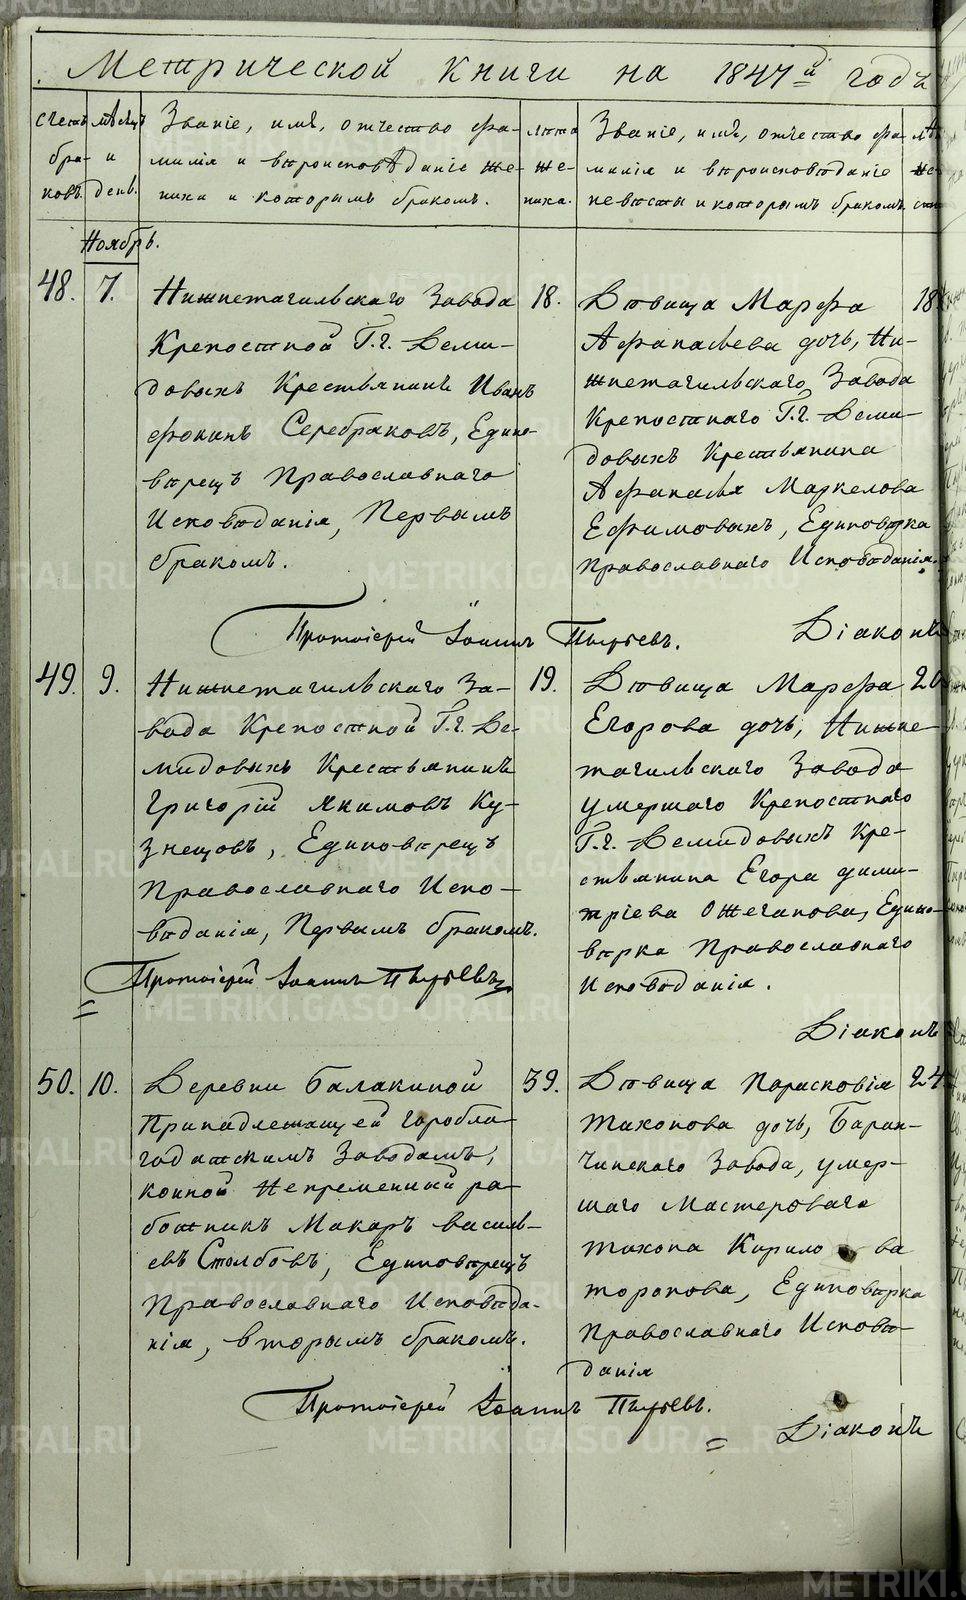 Метрической книги на 1847й годъ
Счетъ браковъ.
Мѣсяцъ и день.
Званіе, имя, отчество фа-
милія и вѣроисповѣданіе же-
ниха и которымъ бракомъ.
лѣта
же-
ниха.
Званіе, имя, отчество фа-
милія и вѣроисповѣданіе
невѣсты и которымъ бракомъ.
Ноябрь.
48. 7.
Нижнетагильскаго Завода
Крепостной Г.г. Деми-
довыхъ Крестьянинъ Иванъ
Фокинъ Серебраковъ, Едино-
вѣрецъ Православнаго
Исповѣданія, Первымъ
бракомъ.
18.
Дѣвица Марфа
Афанасьева дочь, Ни-
жнетагильскаго Завода
Крепостнаго Г.г. Деми-
довыхъ Крестьянина
Афанасья Маркелова
Ефимовыхъ, Единовѣрка
Православнаго Исповѣданія.
18
Протоіерей Іоаннъ Пырьевъ. Діаконъ
49. 9.
Нижнетагильскаго За-
вода Крепостной Г.г. Де-
мидовыхъ Крестьянинъ
Григорій Якимовъ Ку-
знецовъ, Единовѣрецъ
Православнаго Испо-
вѣданія, Первымъ бракомъ.
19.
Дѣвица Марфа
Егорова дочь, Нижне-
тагильскаго Завода
умершаго Крепостнаго
Г.г. Демидовыхъ Кре-
стьянина Егора Дими-
тріева Ожеганова, Едино-
вѣрка Православнаго
Исповѣданія.
20
Протоіерей Іоаннъ Пырьевъ
Діаконъ
50. 10.
Деревни Балакиной
Принадлежащей Гороблa-
годатскимъ Заводамъ,
конной Непременный ра-
ботникъ Макаръ Василь-
евъ Столбовъ, Единовѣрецъ
Православнаго Исповѣда-
нія, вторымъ бракомъ.
39.
Дѣвица Парасковія
Тихонова дочь, Баран-
чинскаго Завода, умер-
шаго Мастероваго
Тихона Кирилова
торопова, Единовѣрка
Православнаго Исповѣ-
данія
24
Протоіерей Іоаннъ Пырьевъ.
Діаконъ
METRIKI.GASO-URAL.RU